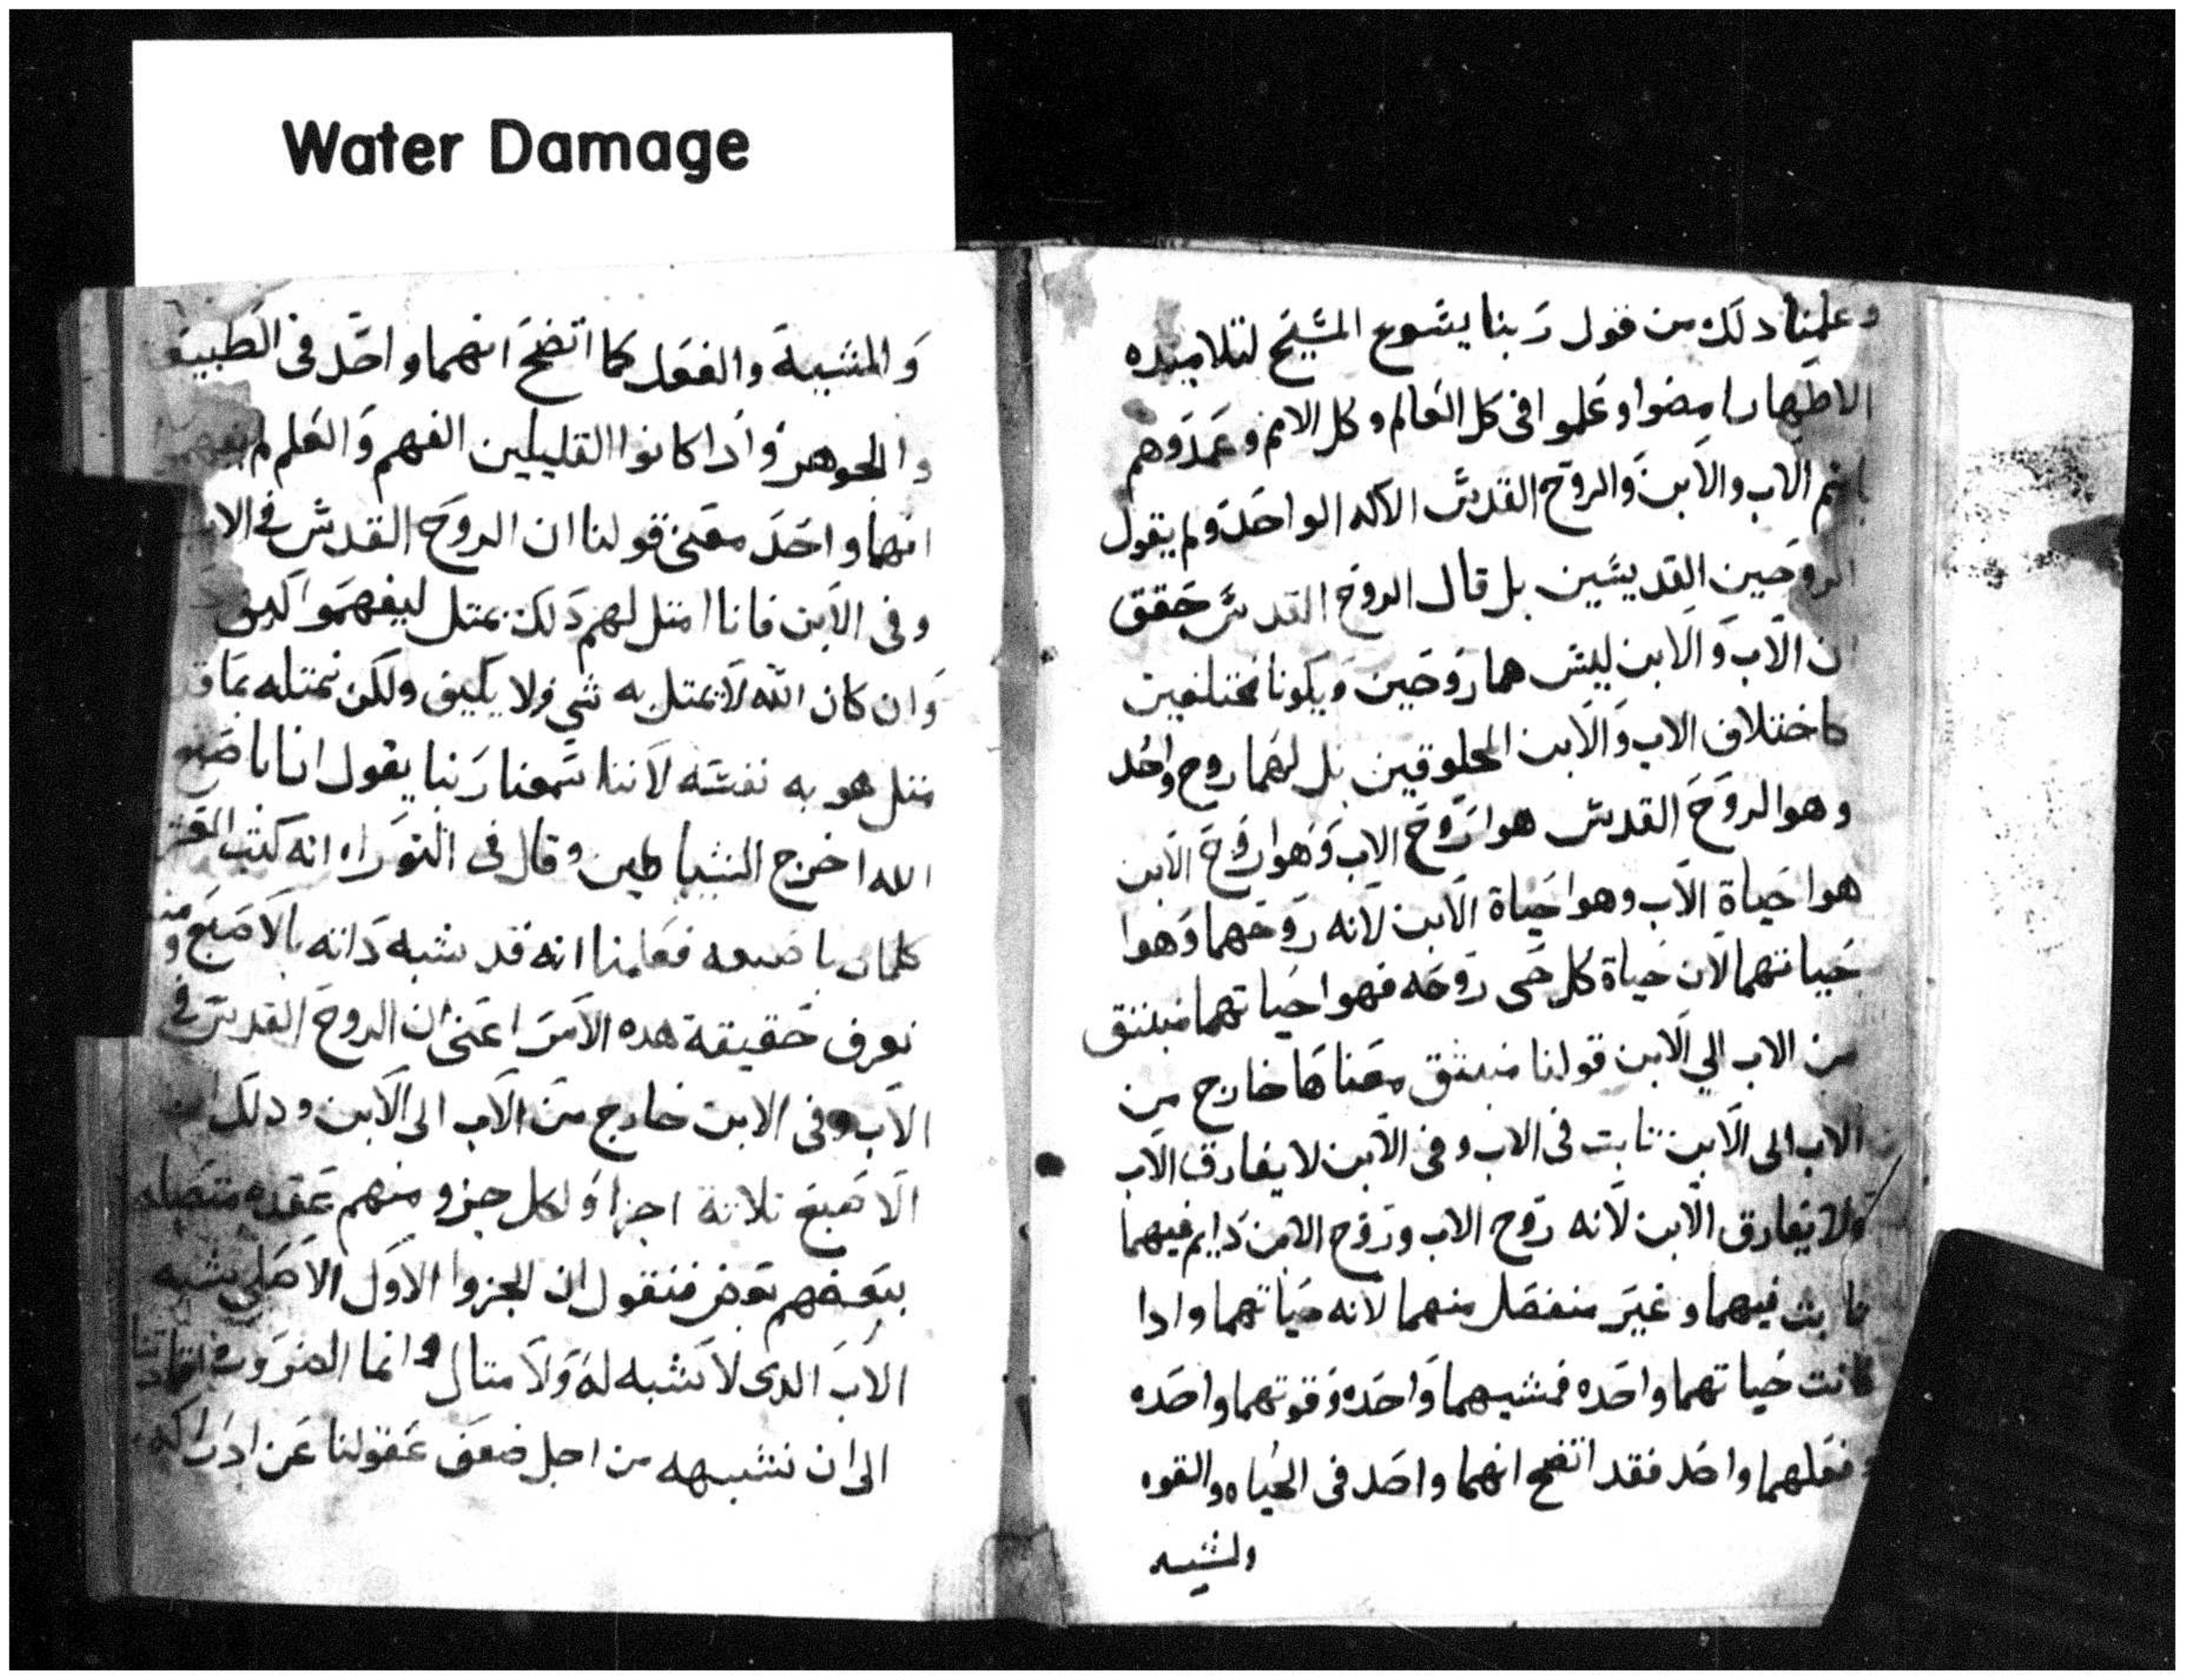 Water Damage
وعلمنا دلك من قول ربنا يسوع المسيح لتلاميده
الاطهار امضوا وعلموا فى كل العالم وكل الامم وعمدوهم
باسم الاب والابن والروح القدس الاله الواحد ولم يقول
الروحين القديسين بل قال الروح القدس حقق
ان الاب والابن ليس هما روحين ويكونا مختلفين
كاختلاف الاب والابن المخلوقين بل لهما روح واحد
وهو الروح القدس هوا روح الاب وهوا روح الابن
هوا حياة الاب وهوا حياة الابن لانه روحهما وهوا
حياتهما لان حياة كل حى روحه فهوا حياتهما منبتق
من الاب الي الابن قولنا منبثق معناها خارج من
الاب الى الابن تابت فى الاب وفى الابن لا يفارق الاب
ولا يفارق الابن لانه روح الاب وروح الابن دايم فيهما
ثابث فيهما وغير منفصل منهما لانه حياتهما وادا
كانت حياتهما واحده فمشيهما واحده وقوتهما واحده
وفعلهما واحد فقد اتضح انهما واحد فى الحياه والقوه
والمشيه
والمشيية والفعل كما اتضح انهما واحد فى الطبيعه
والجوهر وادا كانوا القليلين الفهم والعلم لم يفهموا
انهما واحد معنى قولنا ان الروح القدس فى الاب
وفى الابن فانا امتل لهم دلك بمتل ليفهموا
وان كان الله لا يمتل به شي ولا يليق ولكن نمتله بما قد
متل هو به نفسه لاننا سمعنا ربنا يقول انا باصبع
الله اخرج الشياطين وقال فى التوراه انه كتب العشر
كلمات باصبعه فعلمنا انه قد شبه داته بالاصبع ومنه
نعرف حقيقة هده الامر اعنى ان الروح القدس فى
الاب وفى الابن خارج من الاب الى الابن ودلك ان
الاصبع تلاتة اجزا ولكل جزو منهم عقده متصله
ببعضهم بعض فنقول ان الجزوا الاول الاصلى يشبه
الاب الدى لا شبه له ولا متال وانما الضروره اقتادتنا
الى ان نشبهه من اجل ضعف عقولنا عن ادراكه